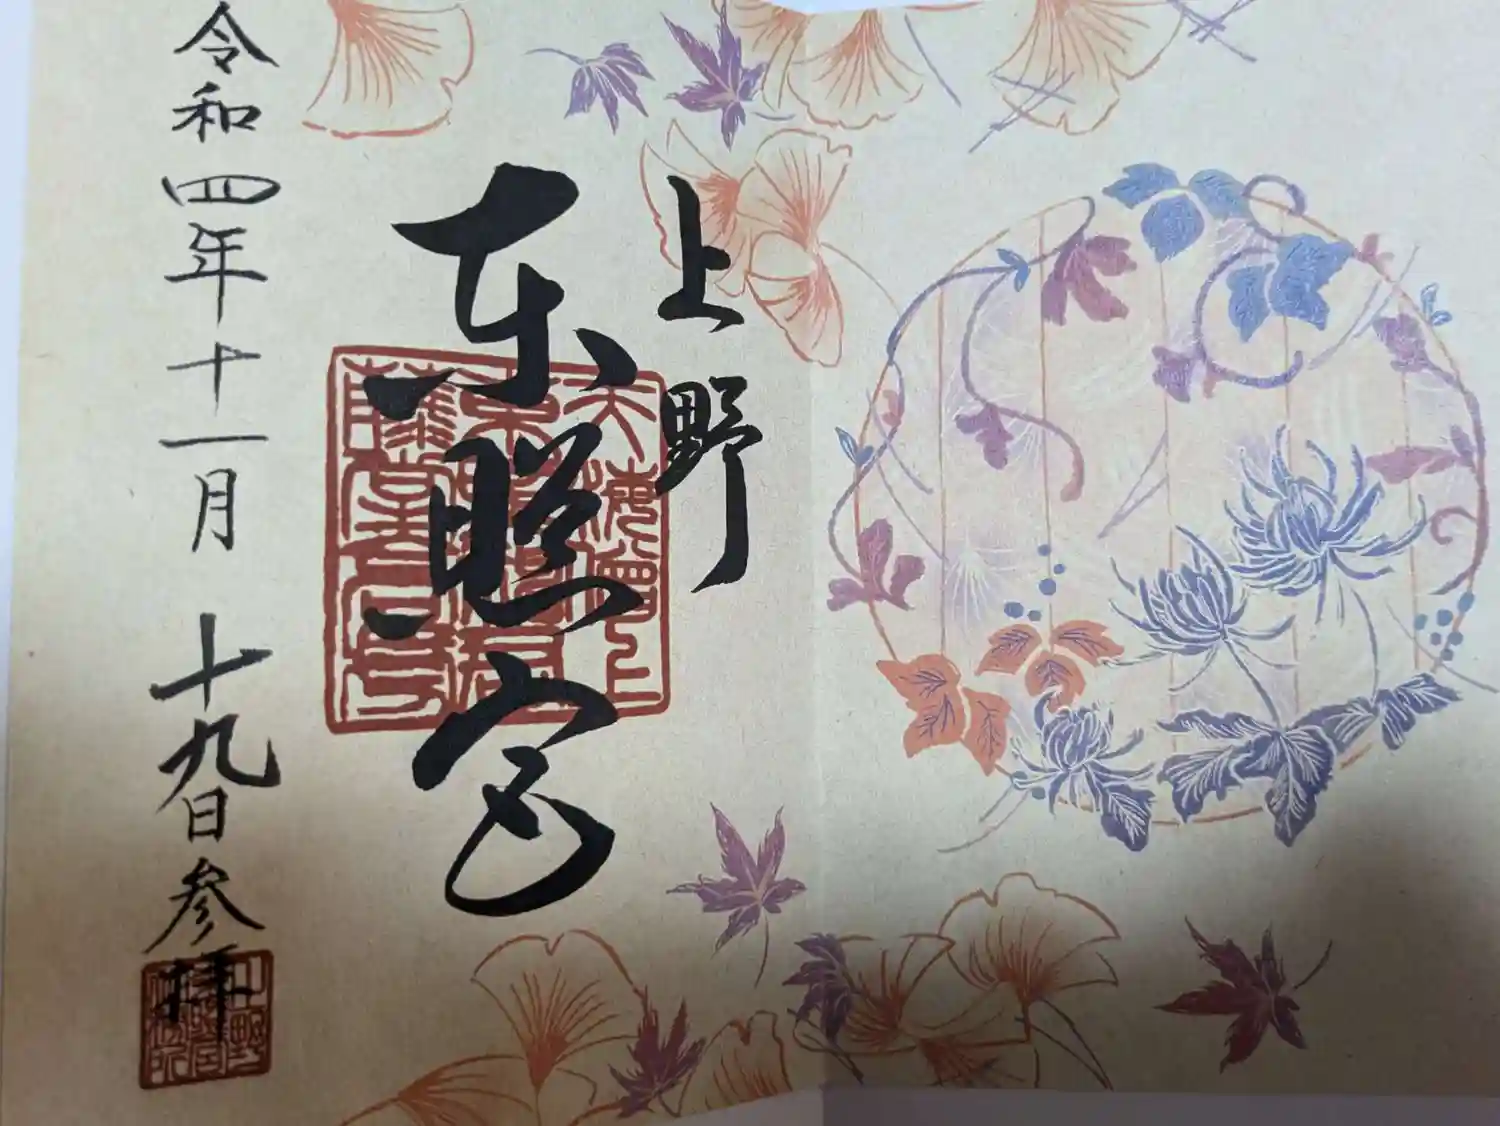 上野
東照宮
令和四年十一月十九日参拝